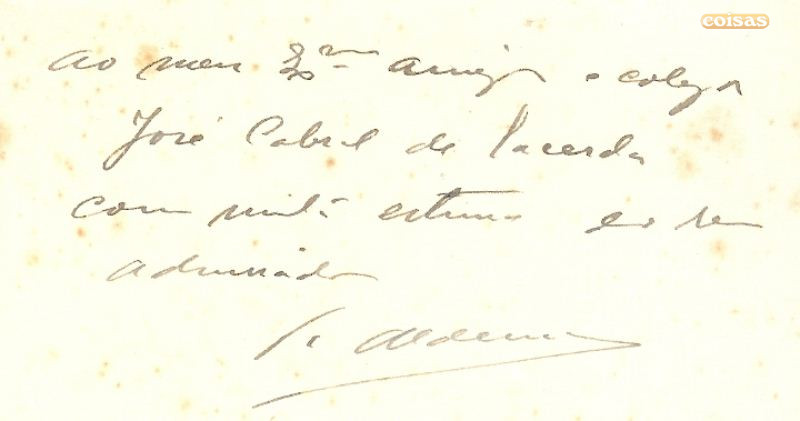 coisas
Ao meu Exmo amigo e colega
José Cabral de Lacerda
com muita estima
admirador